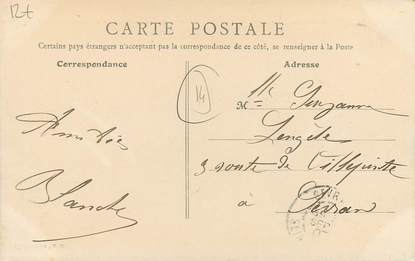 12t
CARTE POSTALE
Certains pays étrangers n'acceptant pas la correspondance de ce côté, se renseigner à la Poste
Correspondance
Adresse
14
Mlle Suzanne
Amitiés
3 route de
Blanche
à Sevran